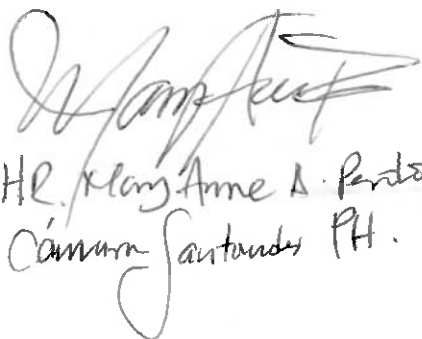 Mary Anne
HR. Mary Anne A. Perdo
Cámara Santander PH.